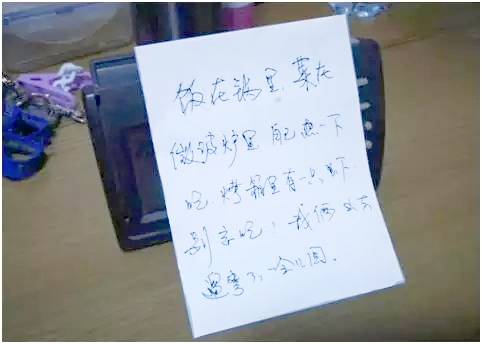 饭在锅里,菜在
微波炉里 自己热一下
吃.烤箱里有一只虾
别忘吃!我俩出去
遛弯了,一会儿回.